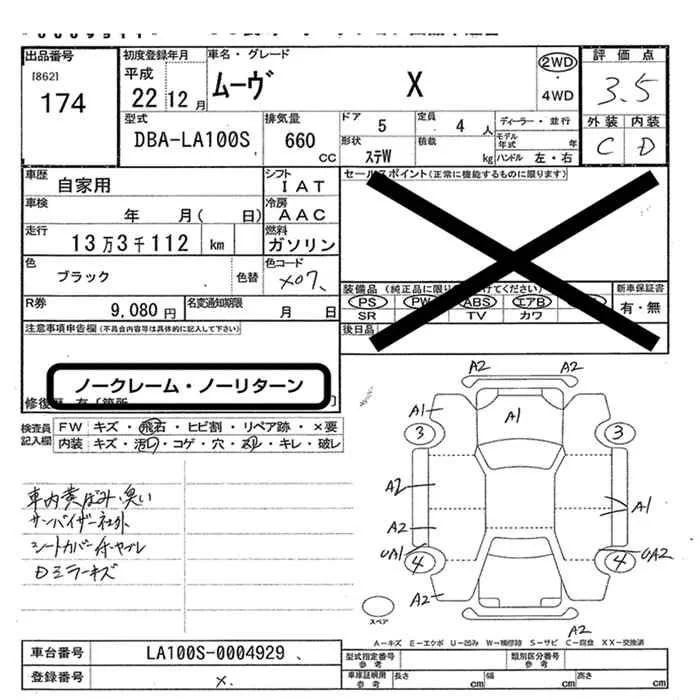 出品番号
[862]
174
初度登録年月
平成
22 12 月
車名・グレード
ムーヴ X
2WD
・
4WD
評価点
3.5
外装 内装
C D
型式
DBA-LA100S
排気量
660
CC
ドア
5
定員
4 人
ディーラー・並行
モデル
年式 年
形状
ステW
積載
kg
ハンドル 左・右
車歴
自家用
シフト
I A T
セールスポイント(正常に機能するものに限ります)
車検
年 月( 日)
冷房
A A C
走行
13万3千112 km
燃料
ガソリン
色
ブラック
色替
色コード
X07、
装備品
新車保証書
PS PW ABS エアB
有・無
SR TV カワ
R券
9,080 円
名変通知期限
月 日
後日品
注意事項申告欄(不具合内容等は具体的に記入して下さい)
ノークレーム・ノーリターン
修復歴
検査員
記入欄
FW キズ・飛石・ヒビ割・リペア跡・×要
内装 キズ・汚れ・コゲ・穴・スレ・キレ・破レ
車内黄ばみ・臭い
サンバイザー社外
シートカバー付、ヤブレ
Dミラーキズ
A2 A2
A1 A1
3 3
A2 A1
A2
UA1 4 4 UA2
A2
A2
スペア
A－キズ E－エクボ U－凹み W－補修跡 S－サビ C－腐食 XX－交換済
車台番号
LA100S-0004929 、
登録番号
X.
型式指定番号
参考
類別区分番号
参考
車庫証明用
参考
長さ
cm
幅
cm
高さ
cm